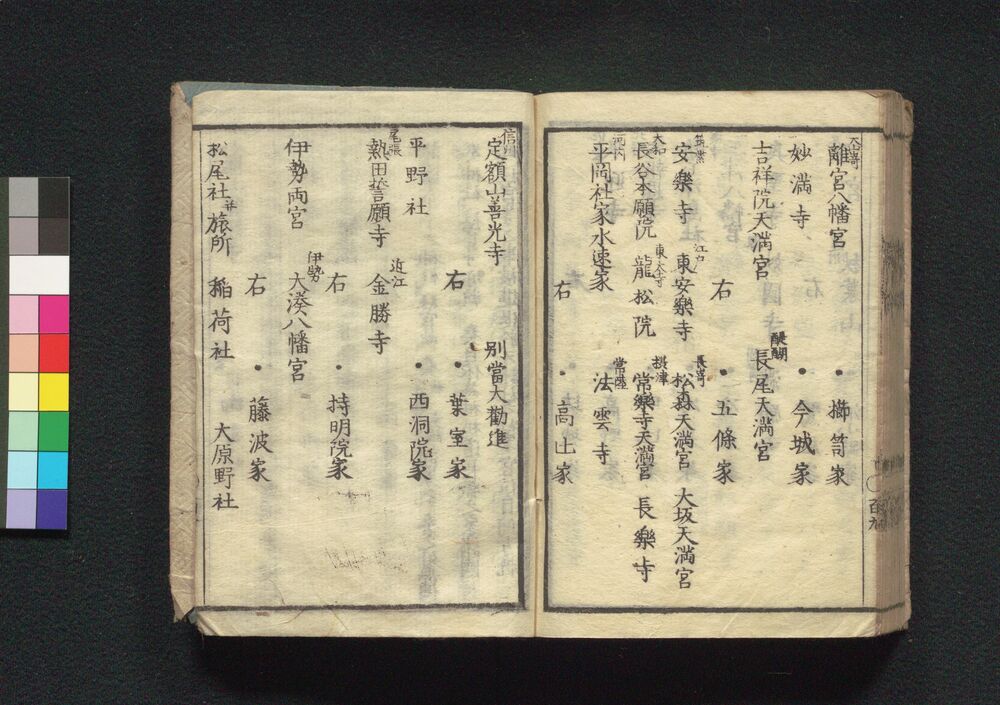 大山崎 離宮八幡宮 ・ 櫛笥家
妙満寺 ・ 今城家
吉祥院天満宮 醍醐 長尾天満宮
右 ・ 五條家
筑紫 安樂寺 江戸 東安樂寺 長崎 松森天満宮 大坂天満宮
大和 長谷本願院 東大寺 龍松院 摂津 常樂寺天満宮 長樂寺
河内 平岡社家水速家 常陸 法雲寺
右 ・ 高辻家
信州 定額山善光寺 別當大勸進
右 ・ 葉室家
平野社 ・ 西洞院家
尾張 熱田誓願寺 近江 金勝寺
右 ・ 持明院家
伊勢両宮 伊勢 大湊八幡宮
右 ・ 藤波家
松尾社并旅所 稲荷社 大原野社